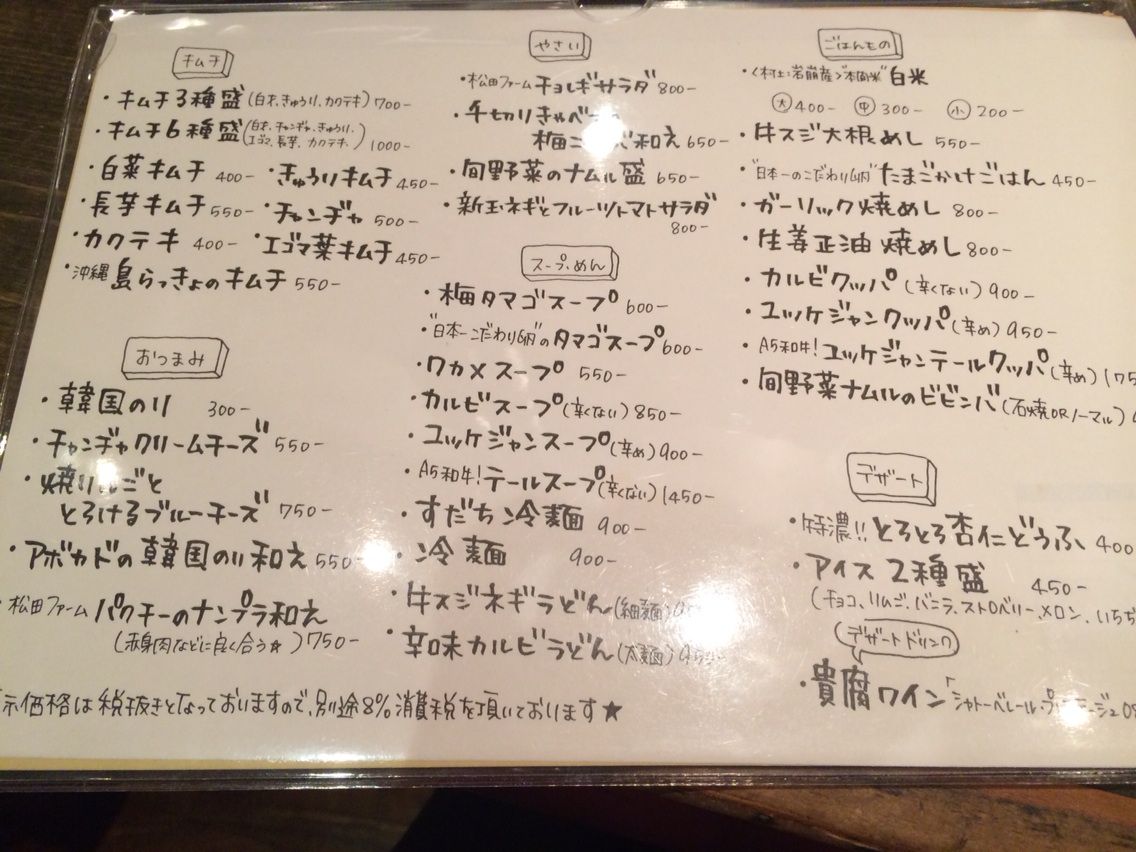 キムチ
・キムチ3種盛(白才、きゅうり、カクテキ)700-
・キムチ6種盛(白才、チャンヂャ、きゅうり、エゴマ、長芋、カクテキ、)1000-
・白菜キムチ 400- ・きゅうりキムチ 450-
・長芋キムチ 550- ・チャンヂャ 500-
・カクテキ 400- ・エゴマ葉キムチ 450-
・沖縄 島らっきょのキムチ 550-
おつまみ
・韓国のり 300-
・チャンヂャクリームチーズ 550-
・焼りんごと
とろけるブルーチーズ 750-
・アボカドの韓国のり和え 550-
・松田ファーム パクチーのナンプラ和え
(赤身肉などに良く合う☆)750-
やさい
・松田ファーム チョレギサラダ 800-
・千切りきゃべつの
梅こ 和え 650-
・旬野菜のナムル盛 650-
・新玉ネギとフルーツトマトサラダ
800-
スープ、めん
・梅タマゴスープ 600-
・"日本一こだわり卵"のタマゴスープ 600-
・ワカメスープ 550-
・カルビスープ(辛くない)850-
・ユッケジャンスープ(辛め)900-
・A5和牛!テールスープ(辛くない)1450-
・すだち冷麺 900-
・冷麺 900-
・牛スジネギうどん(細麺)
・辛味カルビうどん(太麺)950-
ごはんもの
・<村上:岩崩産>"本間米"白米
大400- 中300- 小200-
・牛スジ大根めし 550-
・"日本一のこだわり卵"たまごかけごはん 450-
・ガーリック焼めし 800-
・生姜正油焼めし 800-
・カルビクッパ(辛くない)900-
・ユッケジャンクッパ(辛め)950-
・A5和牛!ユッケジャンテールクッパ(辛め)175
・旬野菜ナムルのビビンバ(石焼ORノーマル)
デザート
・特濃!!とろとろ杏仁どうふ 400
・アイス2種盛 450-
(チョコ、リンゴ、バニラ、ストロベリー、メロン、いちぢ
デザートドリンク
・貴腐ワイン「シャトーベレール・
示価格は税抜きとなっておりますので、別途8%消費税を頂いております★